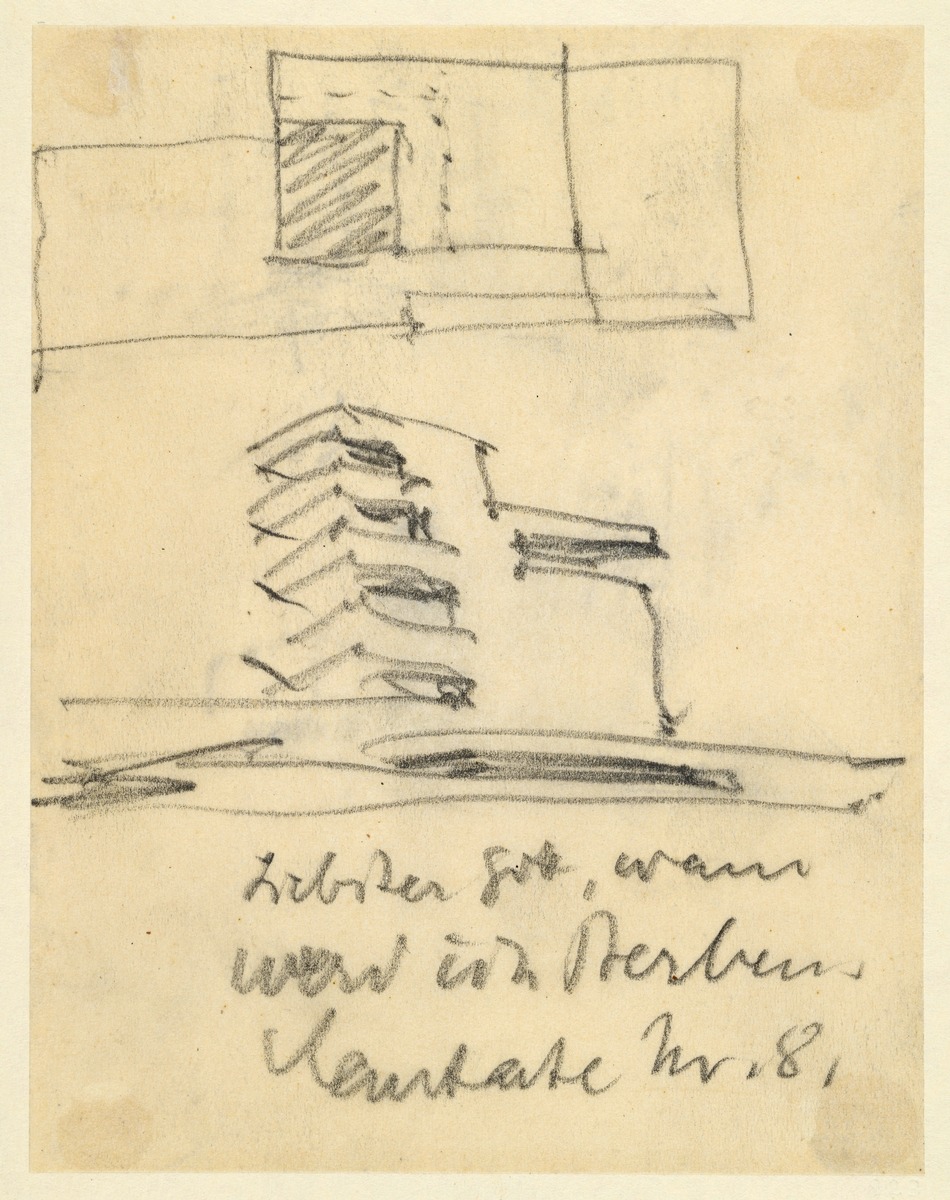 Liebster Gott, wann
werd ich sterben.
Cantate Nr. 8.